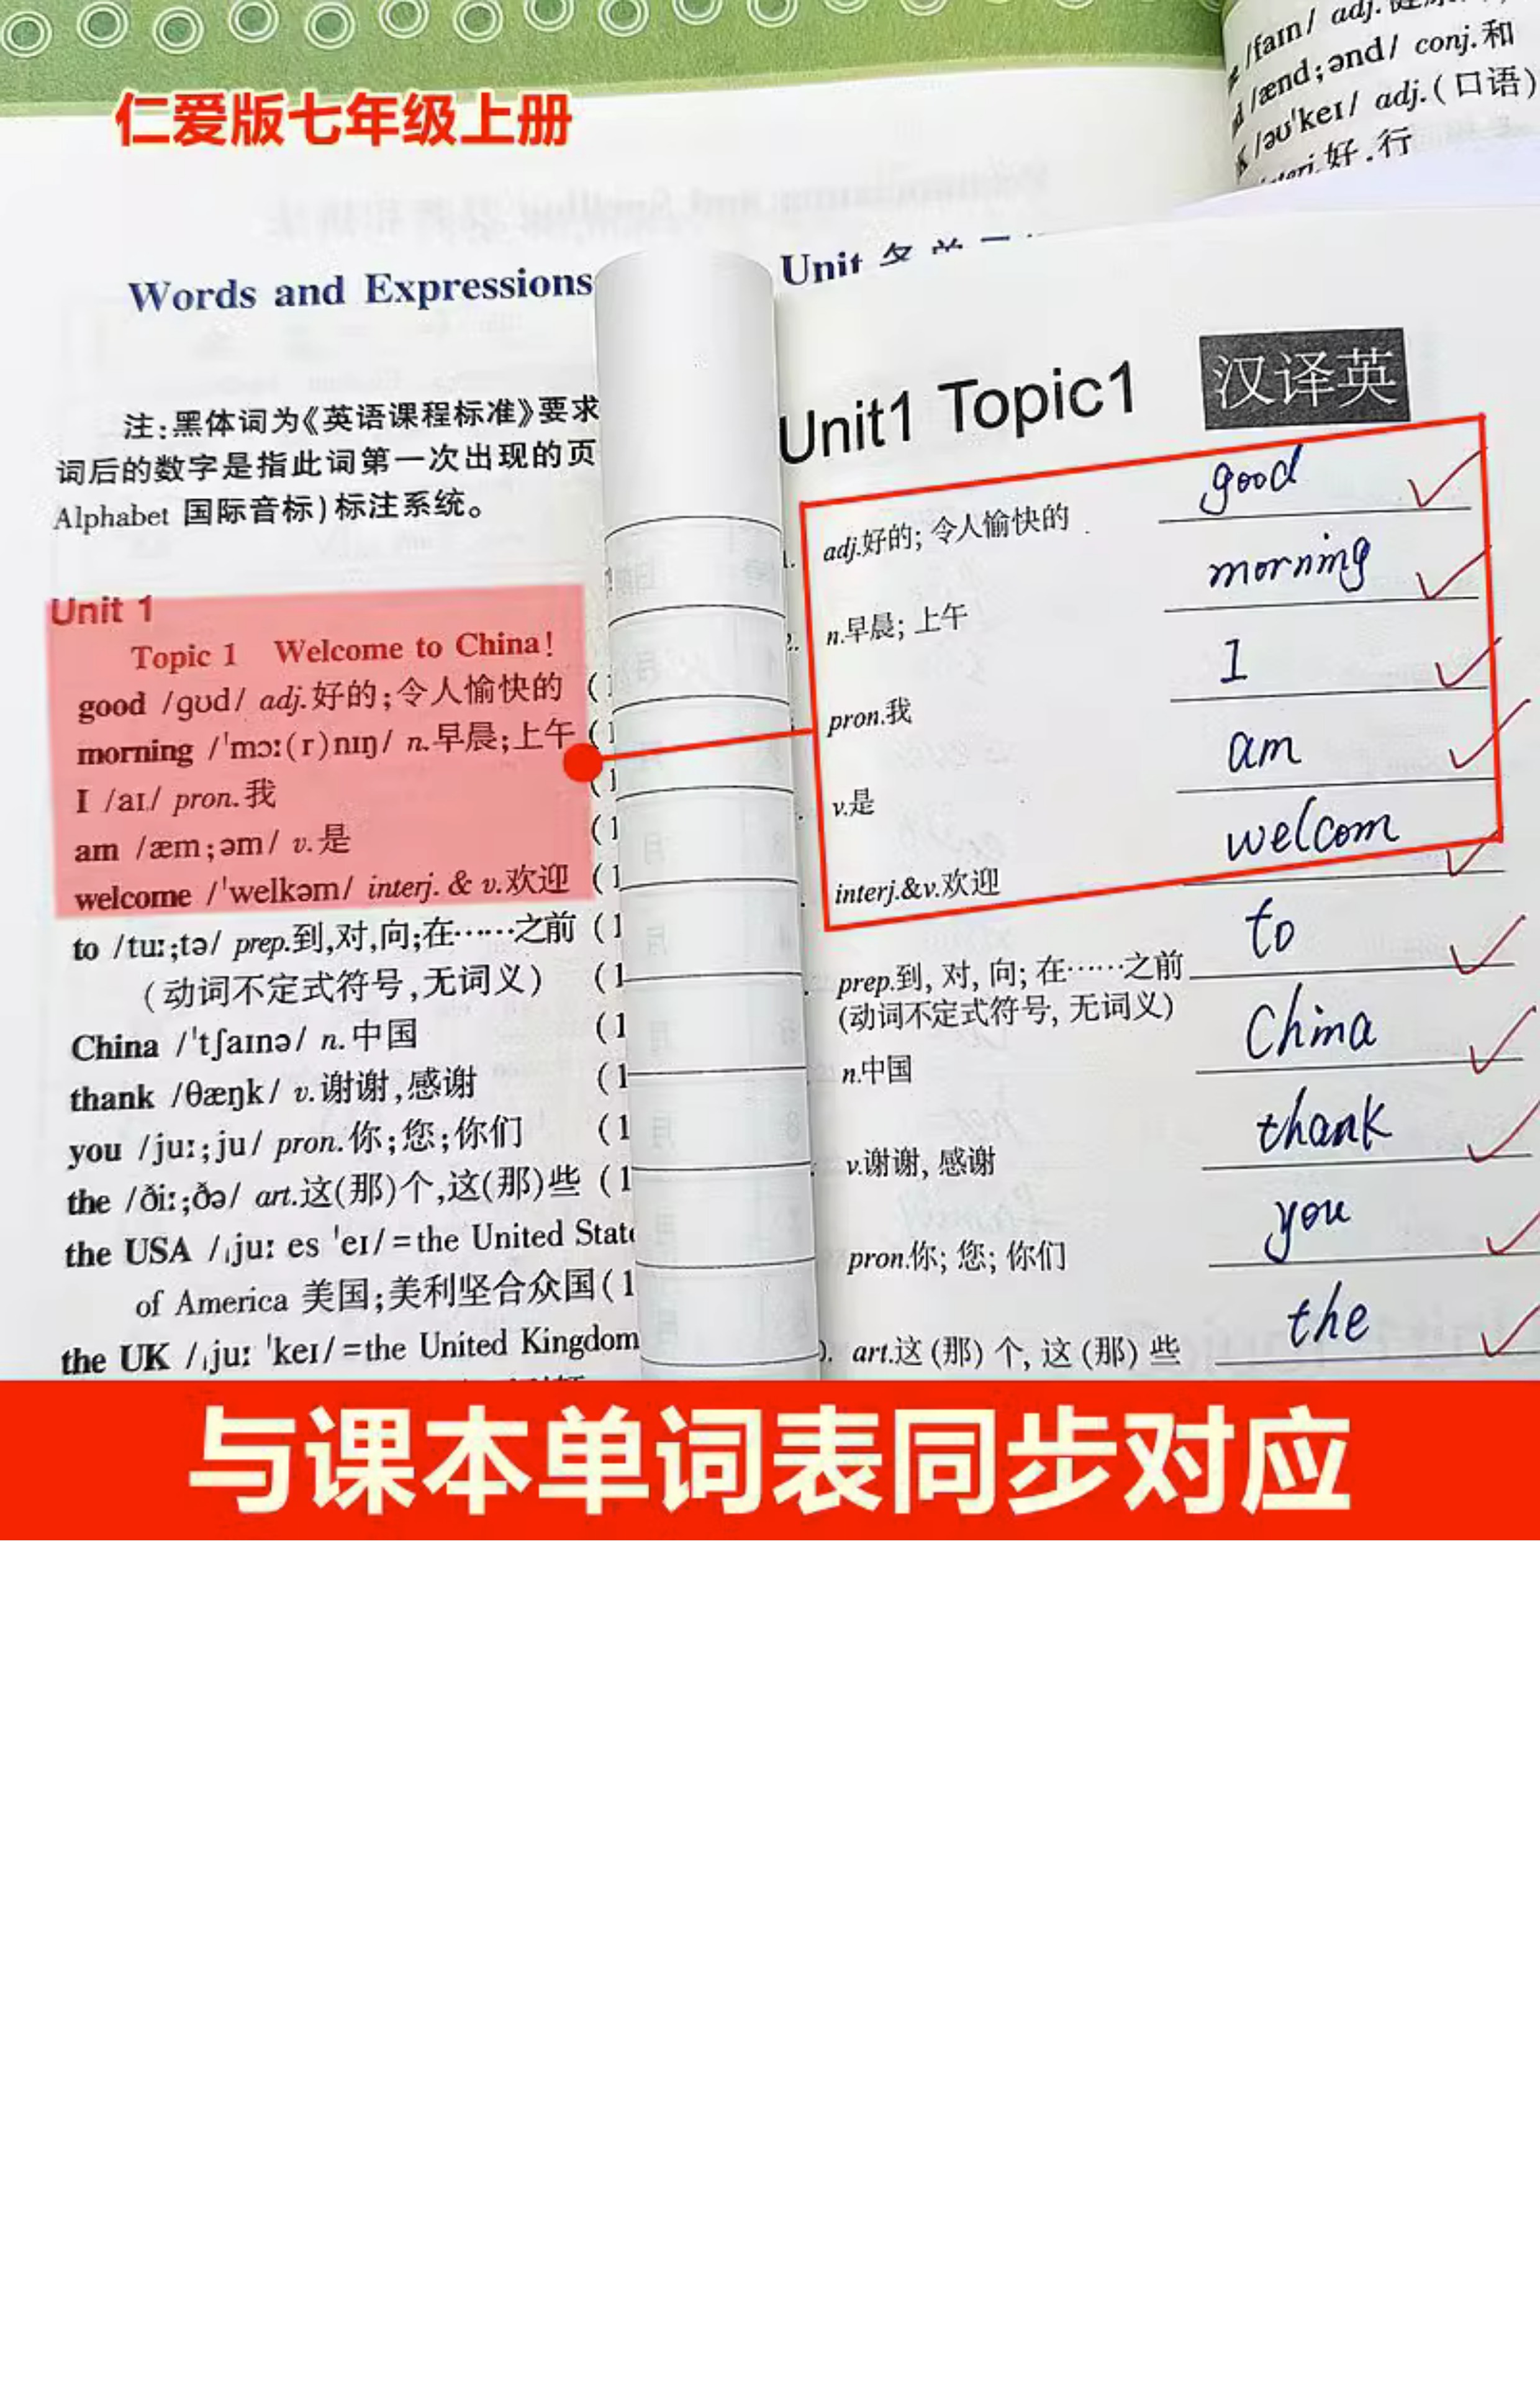 仁爱版七年级上册
/faɪn/ adj.
/ænd;ənd/ conj.和
/əʊ'keɪ/ adj.(口语)
好.行
Words and Expressions
注:黑体词为《英语课程标准》要求
词后的数字是指此词第一次出现的页
Alphabet 国际音标)标注系统。
Unit 1
Topic 1 Welcome to China!
good /ɡʊd/ adj.好的;令人愉快的 (1
morning /'mɔː(r)nɪŋ/ n.早晨;上午 (1
I /aɪ/ pron.我 (1
am /æm;əm/ v.是 (1
welcome /'welkəm/ interj. & v.欢迎 (1
to /tuː;tə/ prep.到,对,向;在……之前 (1
(动词不定式符号,无词义) (1
China /'tʃaɪnə/ n.中国 (1
thank /θæŋk/ v.谢谢,感谢 (1
you /juː;ju/ pron.你;您;你们 (1
the /ðiː;ðə/ art.这(那)个,这(那)些 (1
the USA /ˌjuː es 'eɪ/=the United State
of America 美国;美利坚合众国(1
the UK /ˌjuː 'keɪ/=the United Kingdom
Unit
Unit1 Topic1 汉译英
adj.好的; 令人愉快的 good
n.早晨; 上午 morning
pron.我 I
v.是 am
interj.&v.欢迎 welcom
prep.到, 对, 向; 在……之前 to
(动词不定式符号, 无词义)
n.中国 China
v.谢谢, 感谢 thank
pron.你; 您; 你们 you
art.这 (那) 个, 这 (那) 些 the
与课本单词表同步对应